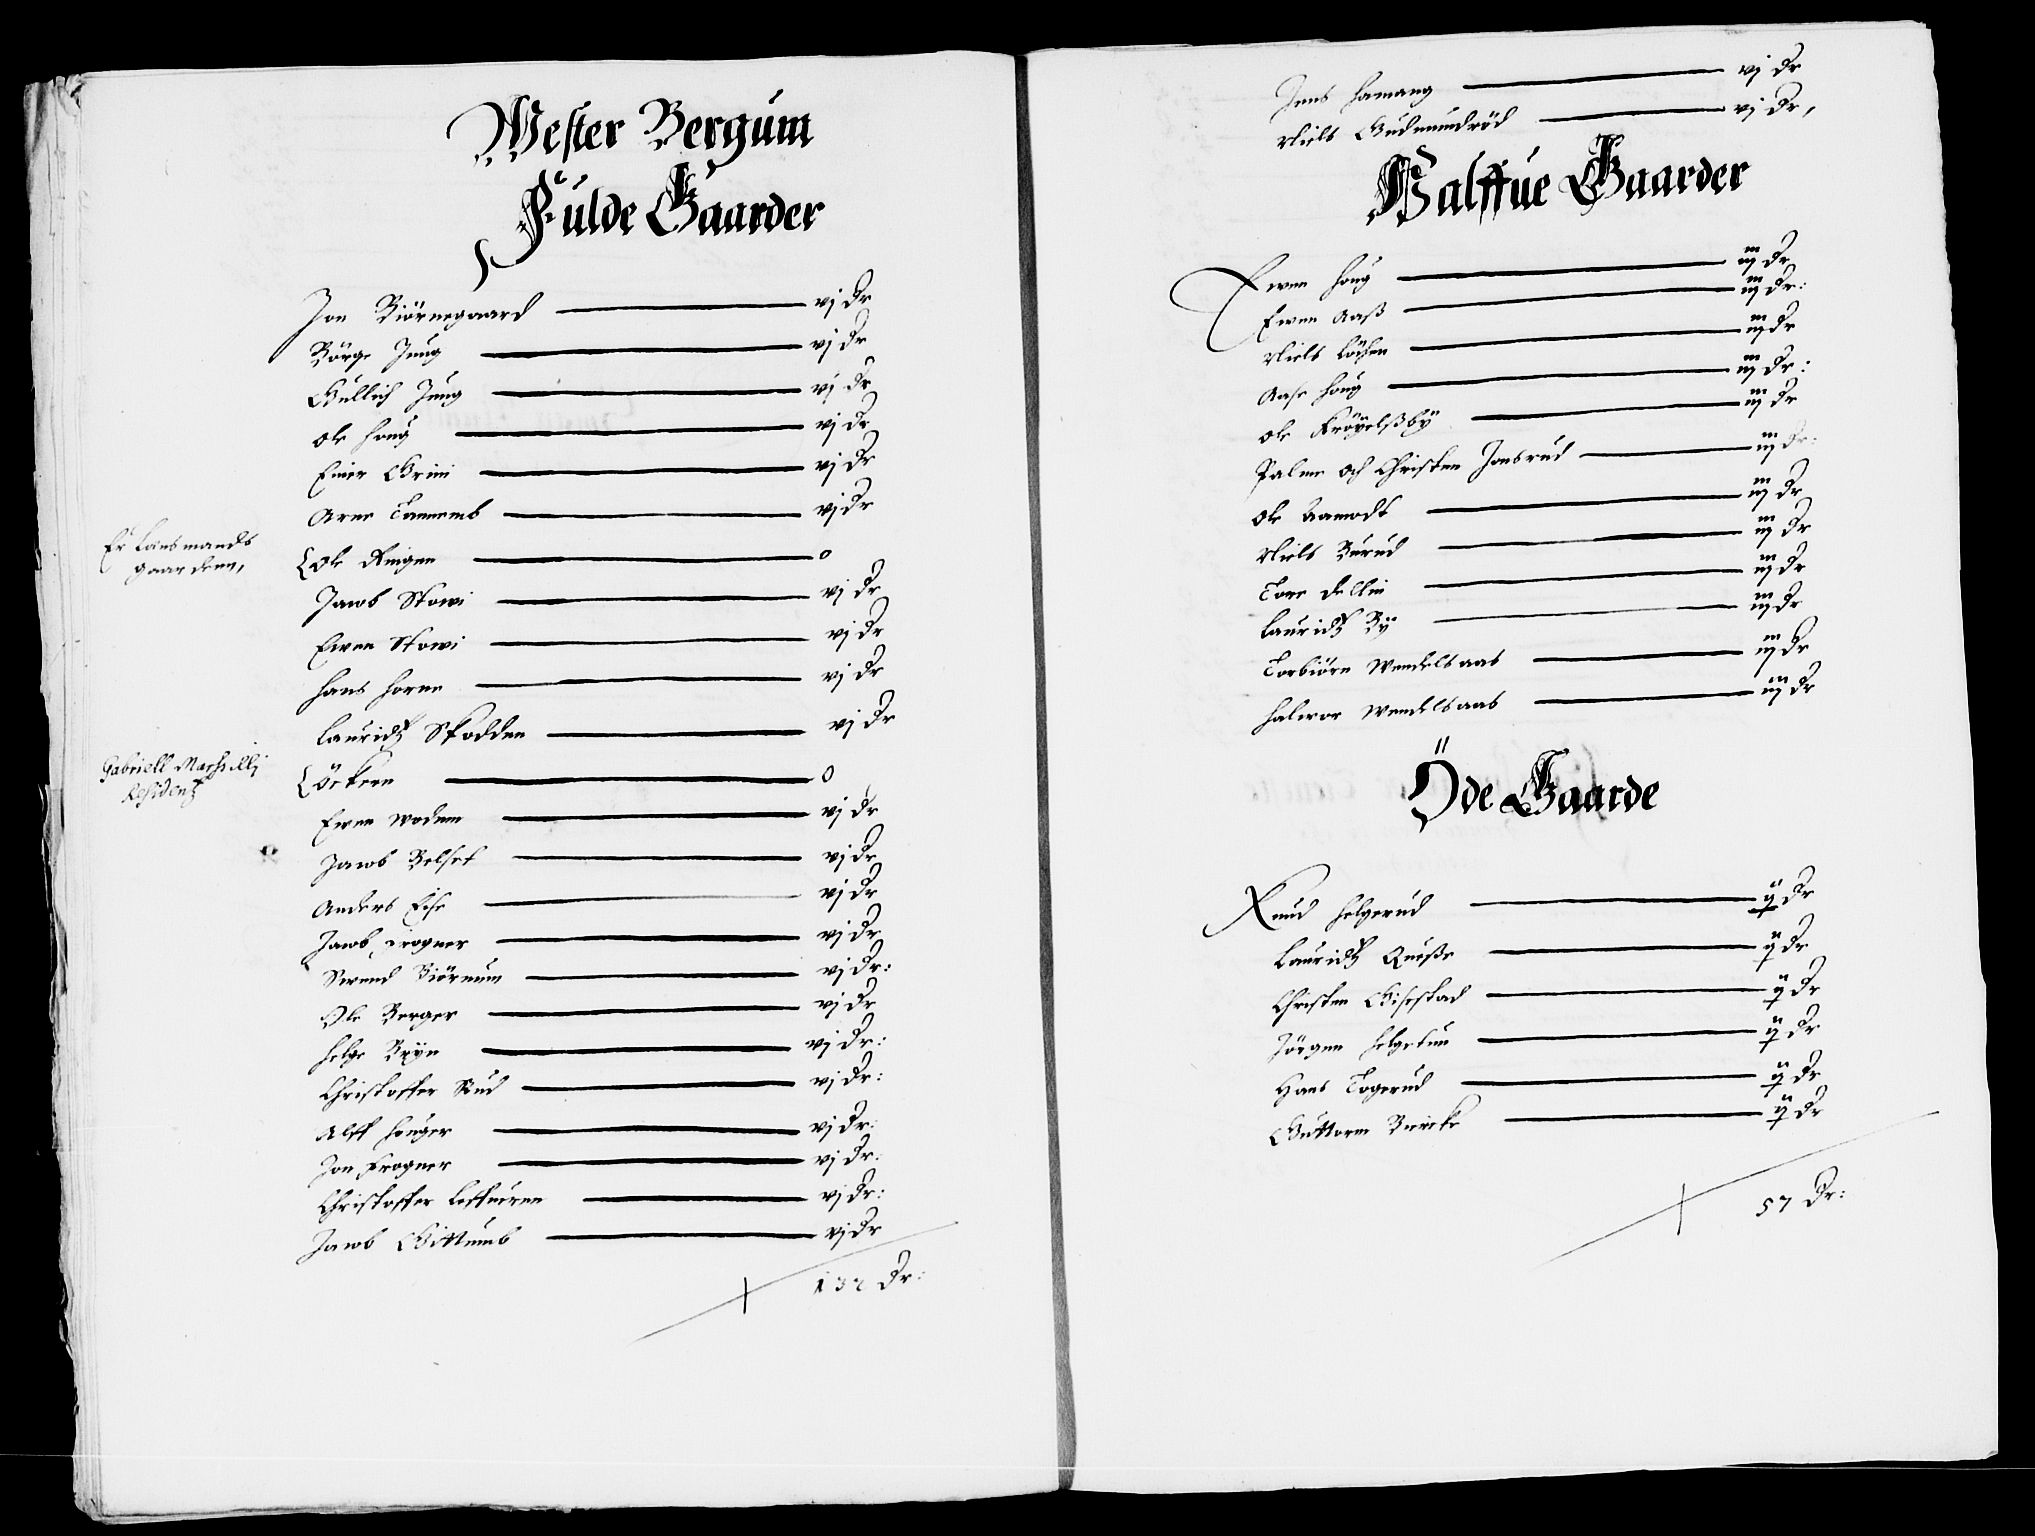 Wester Bergum
Fulde Gaarder
Jon Biörnegaard — vj Dr
Börge Jung — vj Dr
Gullich Jung — vj Dr
Ole Houg — vj Dr
Einer Grini — vj Dr
Arne Tannemb — vj Dr
Er Lansmands
gaardenn,
Ole Ringen — 0
Jacob Stowi — vj Dr
Ewen Stowi — vj Dr
Hans Horne — vj Dr
Lauridtz Skodden — vj Dr
Gabriell Marsillj
Residentz
Öckern — 0
Ewen Wodum — vj Dr
Jacob Belset — vj Dr
Anders Eise — vj Dr
Jacob Frogner — vj Dr
Swend Biörnum — vj Dr:
Ole Berger — vj Dr
Helge Bryn — vj Dr:
Christoffer Rud — vj Dr:
Alff Houger — vj Dr:
Jon Frogner — vj Dr:
Christoffer Leffueren — vj Dr:
Jacob Gittumb — vj Dr
132 Dr:
Jens Hamang — vj Dr
Niels Gudmundröd — vj Dr,
Halffue Gaarder
Ewen Houg — iij Dr
Ewen Aaß — iij Dr:
Niels Löchen — iij Dr
Aase Houg — iij Dr:
Ole Kröyelsby — iij Dr
Palme och Christen Jonsrud — iij Dr:
Ole Aamodt — iij Dr
Niels Burud — iij Dr
Tore Dellin — iij Dr
Lauridtz By — iij Dr
Torbiörn Wendelsaas — iij Dr
Halwor Wendelsaas — iij Dr
Öde Gaarde
Knud Helgerud — ij Dr
Lauridtz Queße — ij Dr
Christen Gisestad — ij Dr
Jörgen Helgetun — ij Dr
Hans Togerud — ij Dr
Guttorm Bierke — ij Dr
57 Dr: